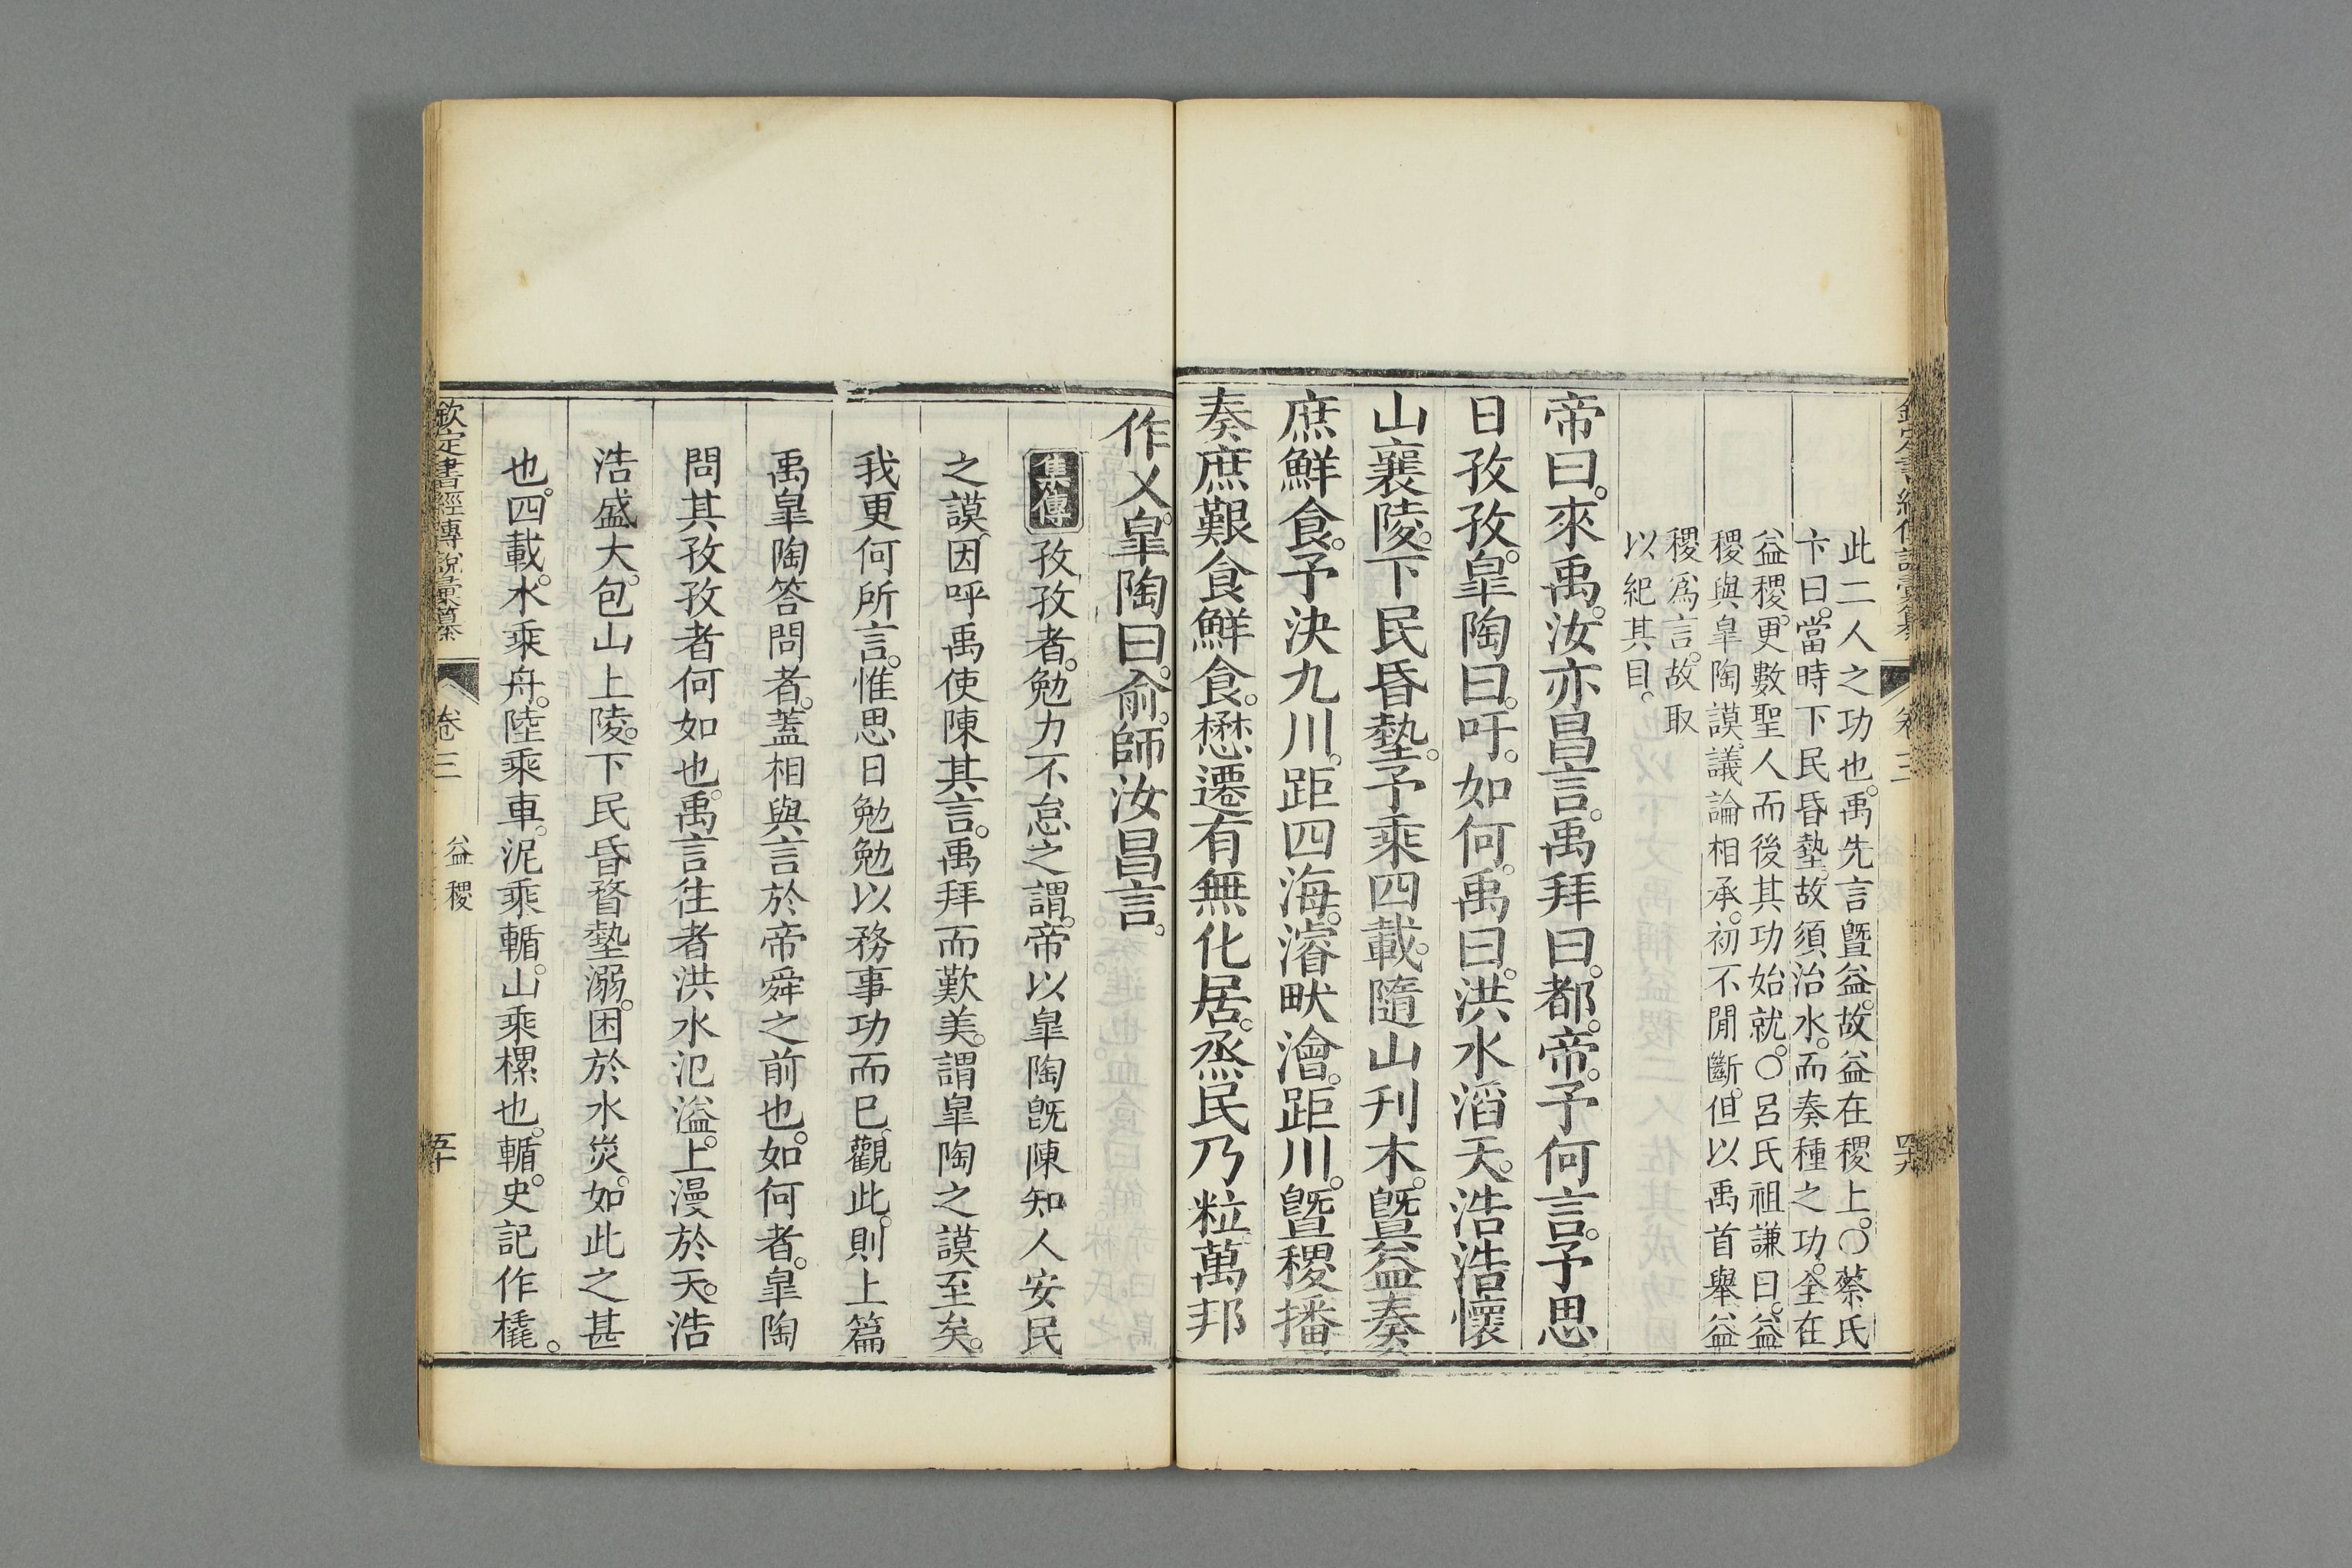 此二人之功也。禹先言曁益。故益在稷上。○蔡氏
卞曰。當時下民昏墊。故須治水。而奏種之功。全在
益稷。更數聖人而後其功始就。○呂氏祖謙曰。益
稷與皐陶謨。議論相承。初不閒斷。但以禹首舉益
稷爲言。故取
以紀其目。
帝曰。來禹。汝亦昌言。禹拜曰。都。帝。予何言。予思
日孜孜。皐陶曰。吁。如何。禹曰。洪水滔天。浩浩懷
山襄陵。下民昏墊。予乘四載。隨山刊木。曁益奏
庶鮮食。予決九川。距四海。濬畎澮。距川。曁稷播
奏庶艱食鮮食。懋遷有無化居。烝民乃粒萬邦
作乂。皐陶曰。俞。師汝昌言。
集傳 孜孜者。勉力不怠之謂。帝以皐陶旣陳知人安民
之謨。因呼禹使陳其言。禹拜而歎美。謂皐陶之謨至矣。
我更何所言。惟思日勉勉以務事功而已。觀此。則上篇
禹皐陶答問者。蓋相與言於帝舜之前也。如何者。皐陶
問其孜孜者何如也。禹言往者洪水氾溢。上漫於天。浩
浩盛大。包山上陵。下民昏瞀墊溺。困於水災。如此之甚
也。四載。水乘舟。陸乘車。泥乘輴。山乘樏也。輴。史記作橇。
欽定書經傳說彙纂 卷三 益稷 五十